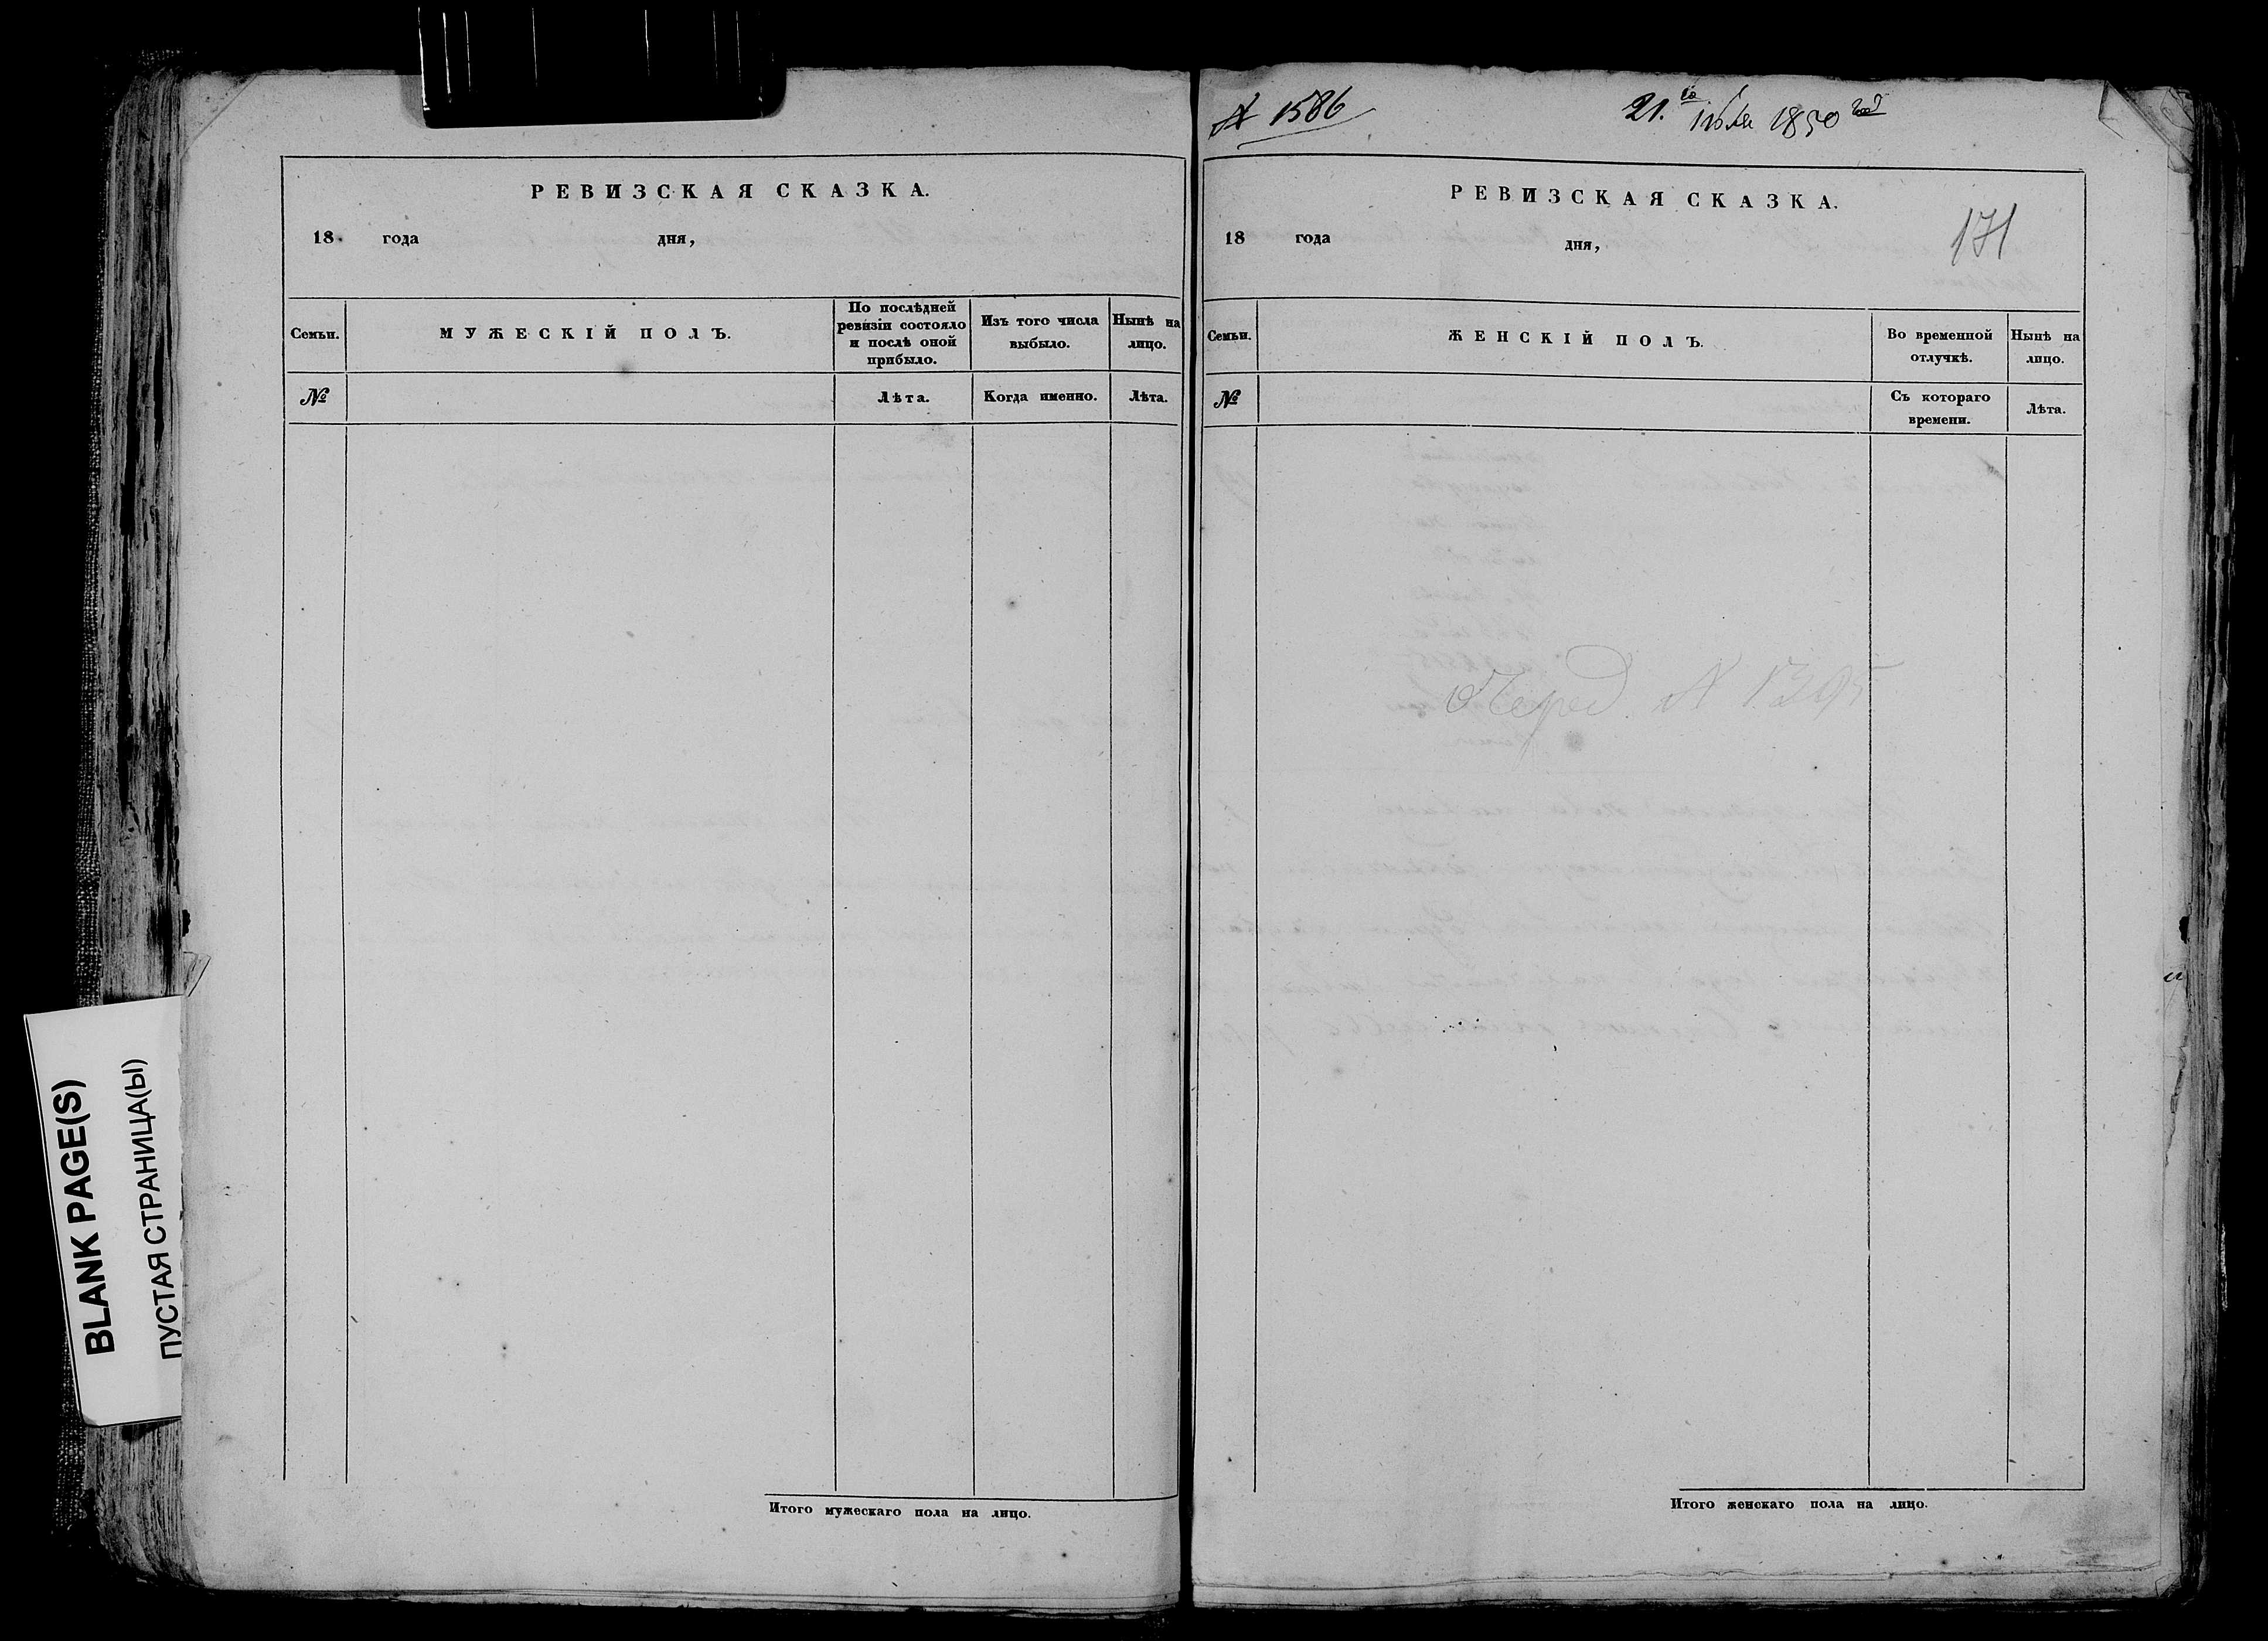 BLANK PAGE(S)
ПУСТАЯ СТРАНИЦА(Ы)
РЕВИЗСКАЯ СКАЗКА.
18 года дня,
Семьи.
МУЖЕСКІЙ ПОЛЪ.
По послѣдней
ревизіи состояло
и послѣ оной
прибыло.
Изъ того числа
выбыло.
Нынѣ на
лицо.
№
Лѣта.
Когда именно.
Лѣта.
Итого мужескаго пола на лицо.
№ 1586
21. 1850
РЕВИЗСКАЯ СКАЗКА.
171
18 года дня,
Семьи.
ЖЕНСКІЙ ПОЛЪ.
Во временной
отлучкѣ.
Нынѣ на
лицо.
№
Съ котораго
времени.
Лѣта.
№ 1395
Итого женскаго пола на лицо.